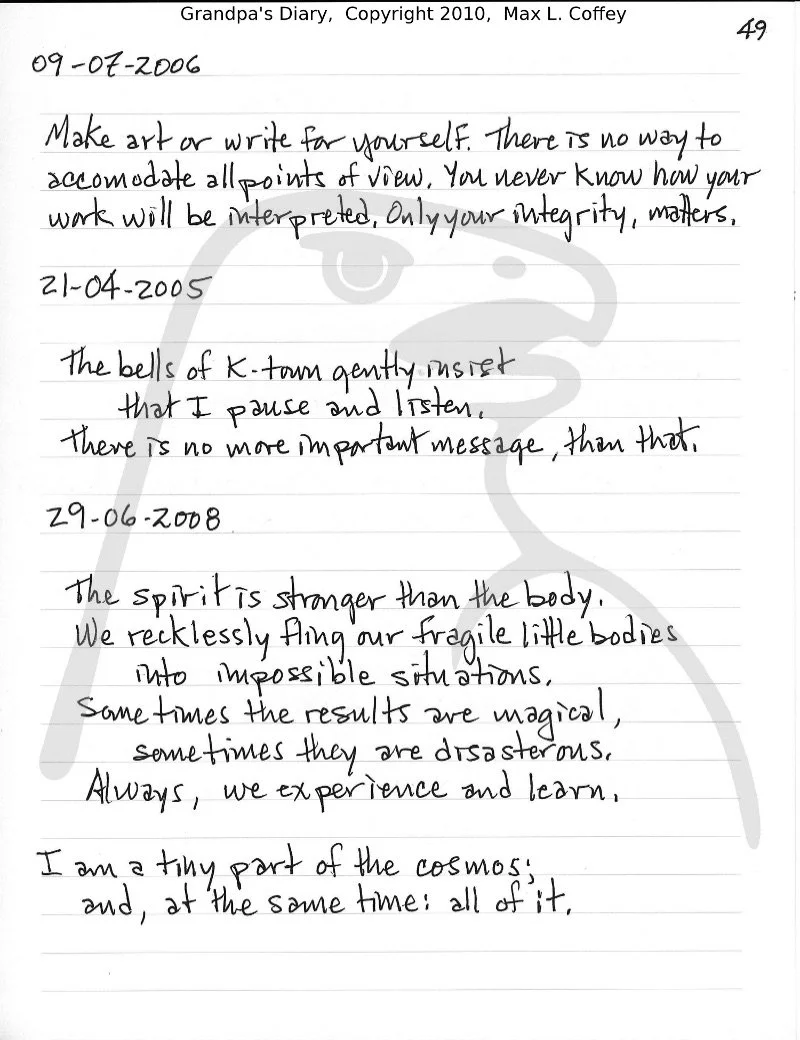 Grandpa's Diary, Copyright 2010, Max L. Coffey
49
09-07-2006
Make art or write for yourself. There is no way to
accomodate all points of view. You never know how your
work will be interpreted. Only your integrity, matters.
21-04-2005
The bells of K-town gently insist
that I pause and listen.
There is no more important message, than that.
29-06-2008
The spirit is stronger than the body.
We recklessly fling our fragile little bodies
into impossible situations.
Sometimes the results are magical,
sometimes they are disasterous.
Always, we experience and learn.
I am a tiny part of the cosmos;
and, at the same time: all of it.